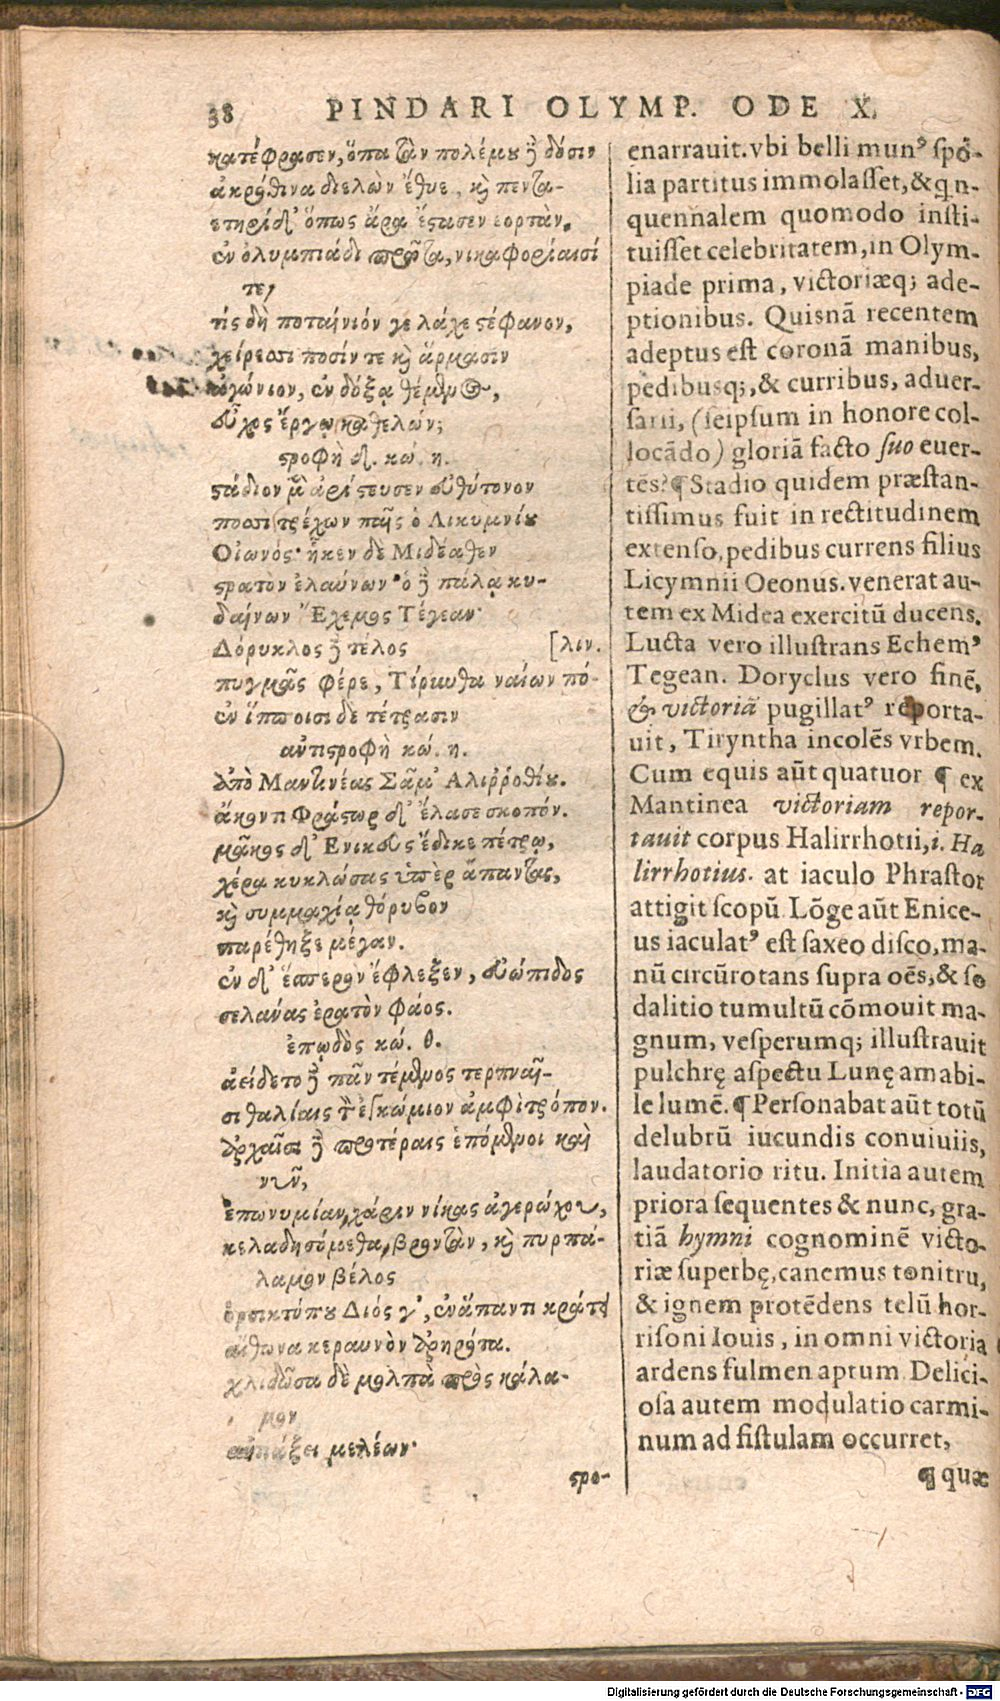 38 PINDARI OLYMP. ODE X.
κατέφρασεν, ὅπα τὰν πολέμου ἢ δόσιν
ἀκρόθινα διελὼν ἔθυε, καὶ πεντα-
ετηρίδ' ὅπως ἄρα ἔστασεν ἑορτὰν,
ἐν ὀλυμπιάδι πρῶτα, νικαφορίαισί
τε,
τίς δὴ ποταίνιόν γε λάχε στέφανον,
χείρεσσι ποσίν τε καὶ ἅρμασιν
ἀγώνιον, ἐν δόξᾳ θέμενος,
εὖχος ἔργῳ καθελών;
στροφὴ δ. κώ. η.
στάδιον μὲν ἀρίστευσεν εὐθύτονον
ποσσὶ τρέχων παῖς ὁ Λικυμνίου
Οἰωνός· ἧκεν δὲ Μιδέαθεν
στρατὸν ἐλαύνων· ὁ δὲ πάλᾳ κυ-
δαίνων Ἔχεμος Τέγεαν·
Δόρυκλος δὲ τέλος [λιν.
πυγμᾶς φέρε, Τίρυνθα ναίων πό-
ἐν ἵπποισι δὲ τέτρασιν
αὐτιστροφὴ κώ. η.
ἀπὸ Μαντινέας Σᾶμ' Ἁλιῤῥοθίου.
ἄκοντι Φράστωρ δ' ἔλασε σκοπόν.
μᾶκος δ' Ἐνικεὺς ἔδικε πέτρῳ,
χέρα κυκλώσας ὑπὲρ ἅπαντας,
καὶ συμμαχίᾳ θόρυβον
παρέθηξε μέγαν.
ἐν δ' ἕσπερον ἔφλεξεν, εὐώπιδος
σελάνας ἐρατὸν φάος.
ἐπῳδὸς κώ. θ.
ἀείδετο δὲ πᾶν τέμενος τερπναῖ-
σι θαλίαις τὸν ἐγκώμιον ἀμφὶ τρόπον.
ἀρχαῖσι δὲ προτέραις ἑπόμενοι καὶ
νῦν,
ἐπωνυμίαν, χάριν νίκας ἀγερώχου,
κελαδησόμεθα, βροντὰν, καὶ πυρπά-
λαμον βέλος
ὀρσικτύπου Διός γ', ἐν ἅπαντι κράτει
αἴθωνα κεραυνὸν ἀρηρότα.
χλιδῶσα δὲ μολπὰ πρὸς κάλα-
μον
ἀντιάξει μελέων·
στρο-
enarrauit. vbi belli munꝰ spó-
lia partitus immolasset, & q̃n-
quennalem quomodo insti-
tuisset celebritatem, in Olym-
piade prima, victoriæq; ade-
ptionibus. Quisnã recentem
adeptus est coronã manibus,
pedibusq;, & curribus, aduer-
sarii, (seipsum in honore col-
locãdo) gloriã facto suo euer-
tẽs? ¶ Stadio quidem præstan-
tissimus fuit in rectitudinem
extenso, pedibus currens filius
Licymnii Oeonus. venerat au-
tem ex Midea exercitũ ducens.
Lucta vero illustrans Echemꝰ
Tegean. Doryclus vero finẽ,
& victoriã pugillatꝰ reporta-
uit, Tiryntha incolẽs vrbem.
Cum equis aũt quatuor ¶ ex
Mantinea victoriam repor-
tauit corpus Halirrhotii, i. Ha
lirrhotius. at iaculo Phrastor
attigit scopũ. Lõge aũt Enice-
us iaculatꝰ est saxeo disco, ma-
nũ circũrotans supra oẽs, & so
dalitio tumultũ cõmouit ma-
gnum, vesperumq; illustrauit
pulchrę aspectu Lunę amabi-
le lumẽ. ¶ Personabat aũt totũ
delubrũ iucundis conuiuiis,
laudatorio ritu. Initia autem
priora sequentes & nunc, gra-
tiã hymni cognominẽ victo-
riæ superbę, canemus tonitru,
& ignem protẽdens telũ hor-
risoni Iouis, in omni victoria
ardens fulmen aptum. Delici-
osa autem modulatio carmi-
num ad fistulam occurret,
¶ quæ
Digitalisierung gefördert durch die Deutsche Forschungsgemeinschaft - DFG